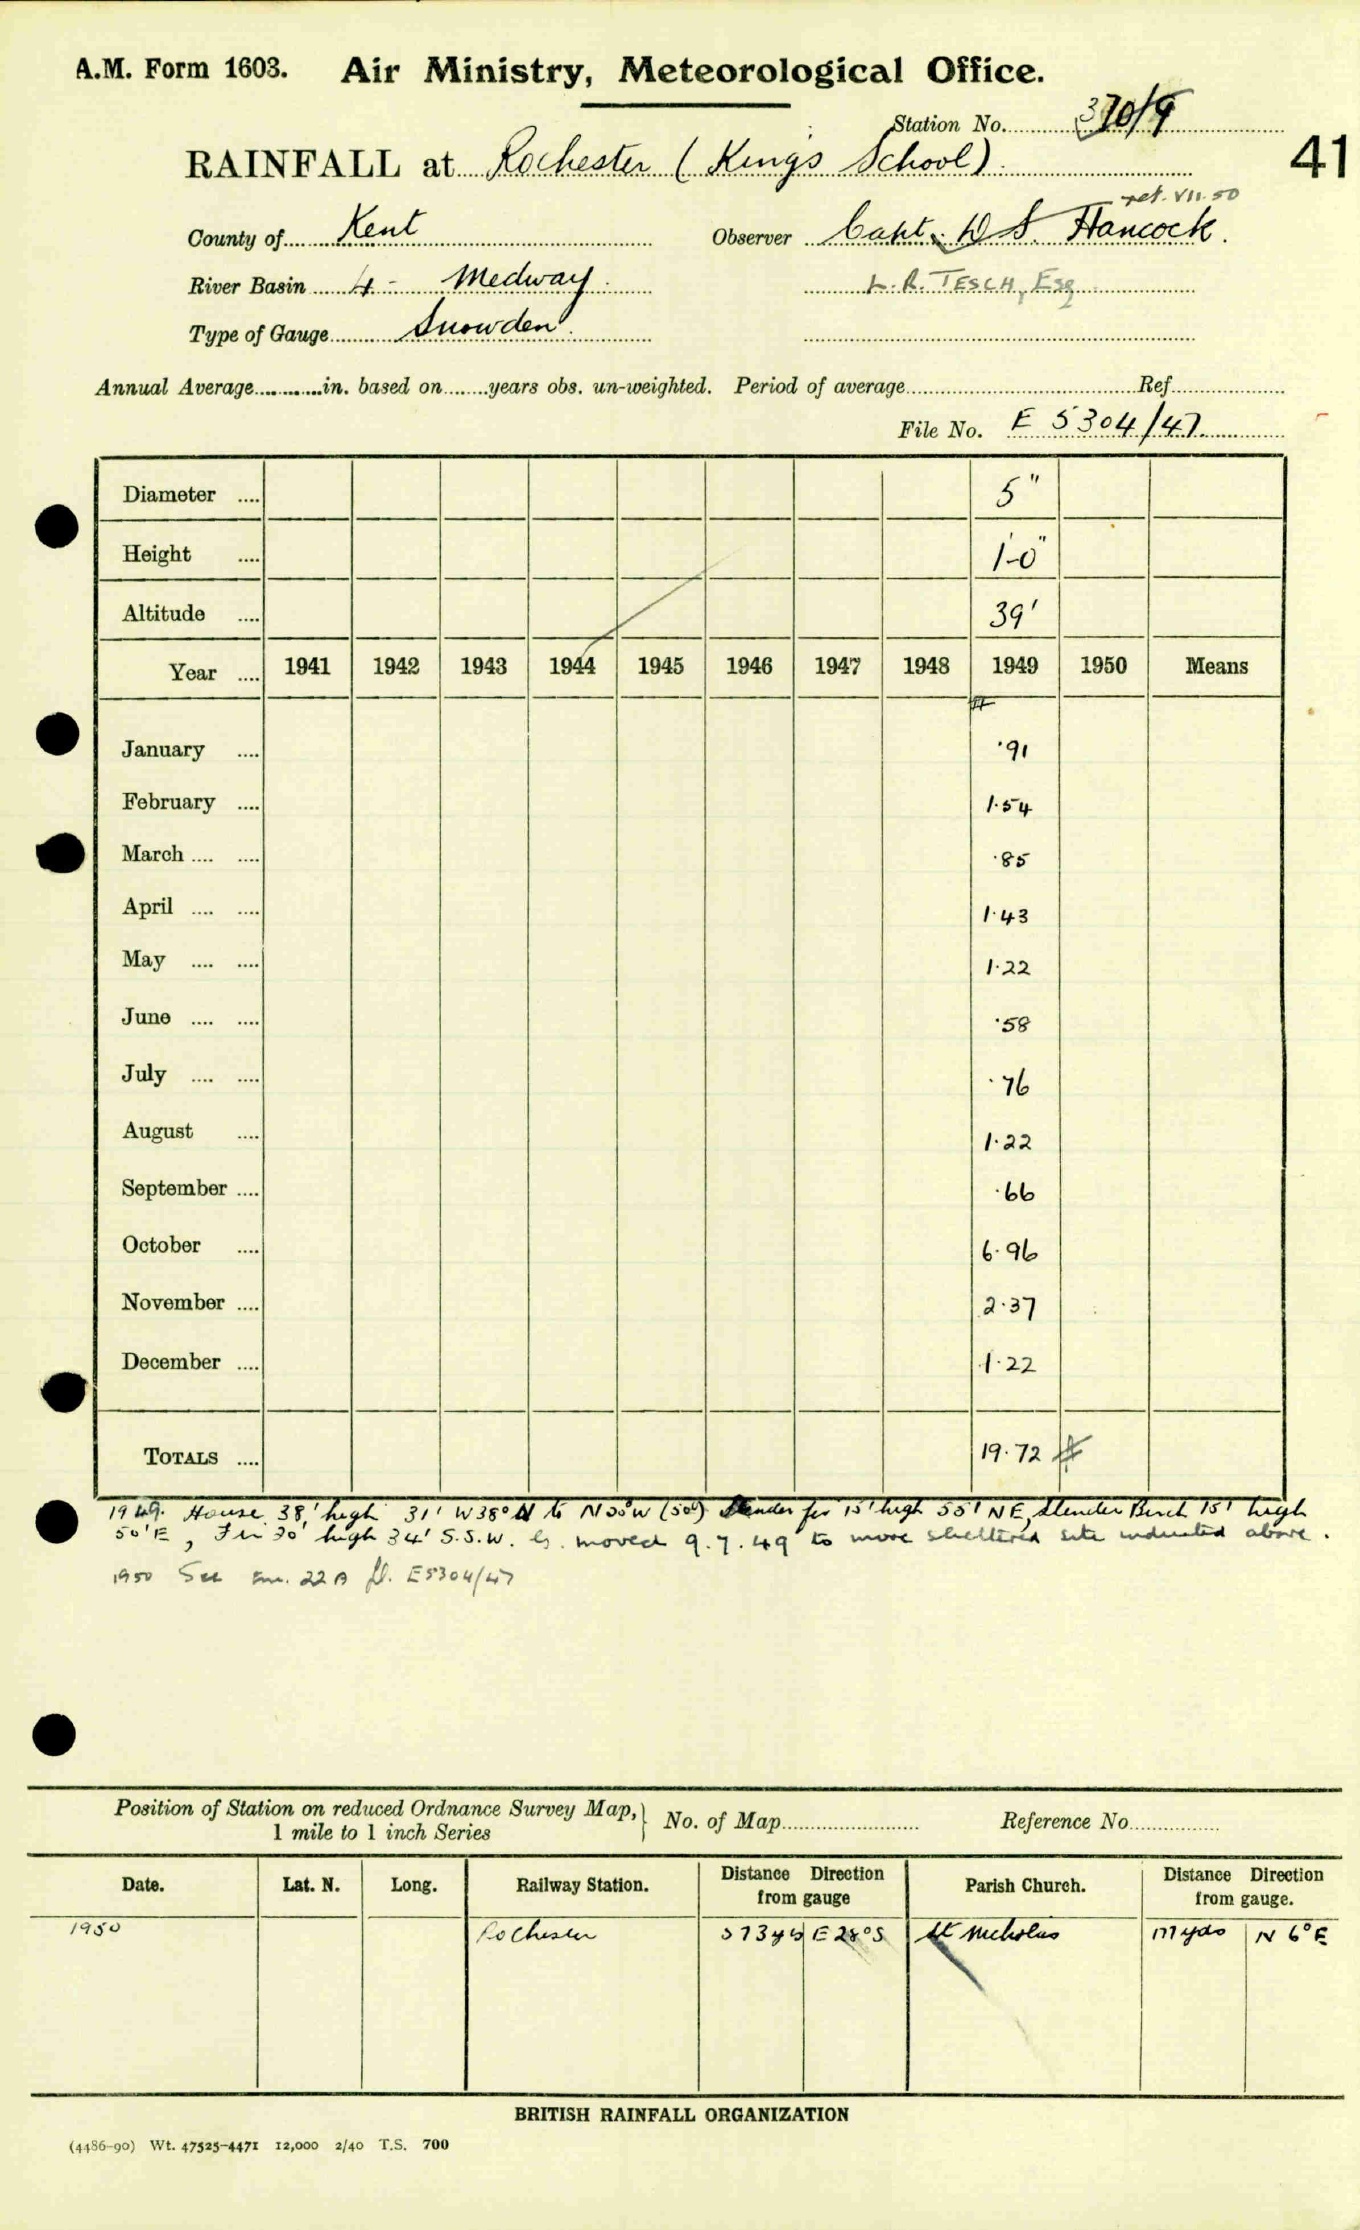 A.M. Form 1603. Air Ministry, Meteorological Office.
Station No. 370/9
41
RAINFALL at Rochester (King's School).
ret. VII. 50
County of Kent Observer Capt. D S. Hancock.
River Basin 4 - Medway. L. R. TESCH, Esq
Type of Gauge Snowden.
Annual Average............in. based on........years obs. un-weighted. Period of average........ Ref........
File No. E 5304/47.
Diameter .... 5"
Height .... 1'-0"
Altitude .... 39'
Year .... 1941 1942 1943 1944 1945 1946 1947 1948 1949 1950 Means
#
January .... ·91
February .... 1·54
March .... .... ·85
April .... .... 1·43
May .... .... 1·22
June .... .... ·58
July .... .... ·76
August .... 1·22
September .... ·66
October .... 6·96
November .... 2·37
December .... 1·22
TOTALS .... 19·72 #
1949. House 38' high 31' W38°N to N W (50°) high 55' NE, Slender Birch 15' high
50'E, Fir 30' high 34' S.S.W. G. moved 9.7.49 to more sheltered site indicated above.
1950 See 22A fl. E5304/47
Position of Station on reduced Ordnance Survey Map, } No. of Map........ Reference No........
1 mile to 1 inch Series
Date. Lat. N. Long. Railway Station. Distance from gauge Direction Parish Church. Distance from gauge. Direction
1950 Rochester 573yds E 28°S St Nicholas 177yds N 6°E
BRITISH RAINFALL ORGANIZATION
(4486-90) Wt. 47525-4471 12,000 2/40 T.S. 700